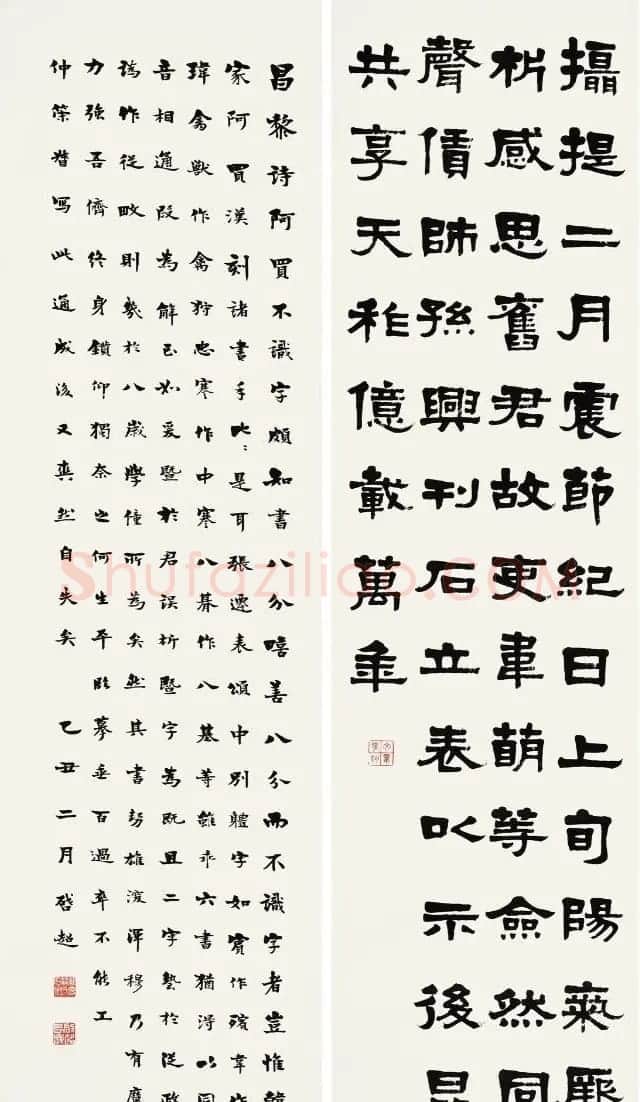 攝提二月震節紀日上旬陽氣厥
析感思舊君故吏韋萌等僉然同
聲賃師孫興刊石立表以示後昆
共享天祚億載萬年
昌黎詩阿買不識字頗知書八分嘻善八分而不識字者豈惟韓
家阿買漢刻諸書手比比是耳張遷表頌中別體字如賓作殯韋作
瑋禽獸作禽狩忠謇作中蹇八 作八基等雖乖六書猶得以同
音相通叚為解至如爰暨於君誤析暨字為既且二字蓺於從政
誤作從畋則幾於八歲學僮所為矣然其書勢雄渾穆乃有魔
力強吾儕終身鑽仰獨奈之何生平臨摹垂百過卒不能工
仲策督寫此通成後又爽然自失矣 乙丑二月啓超
Shufaziliao.COM